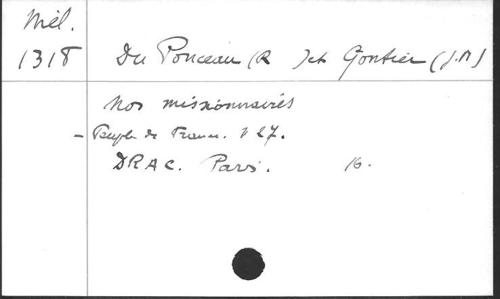 Mél.
1318
Du Ponceau (R ) et Gontier (J.M)
Nos missionnaires
- Peuple de France. n 27.
DRAC. Paris. 16.